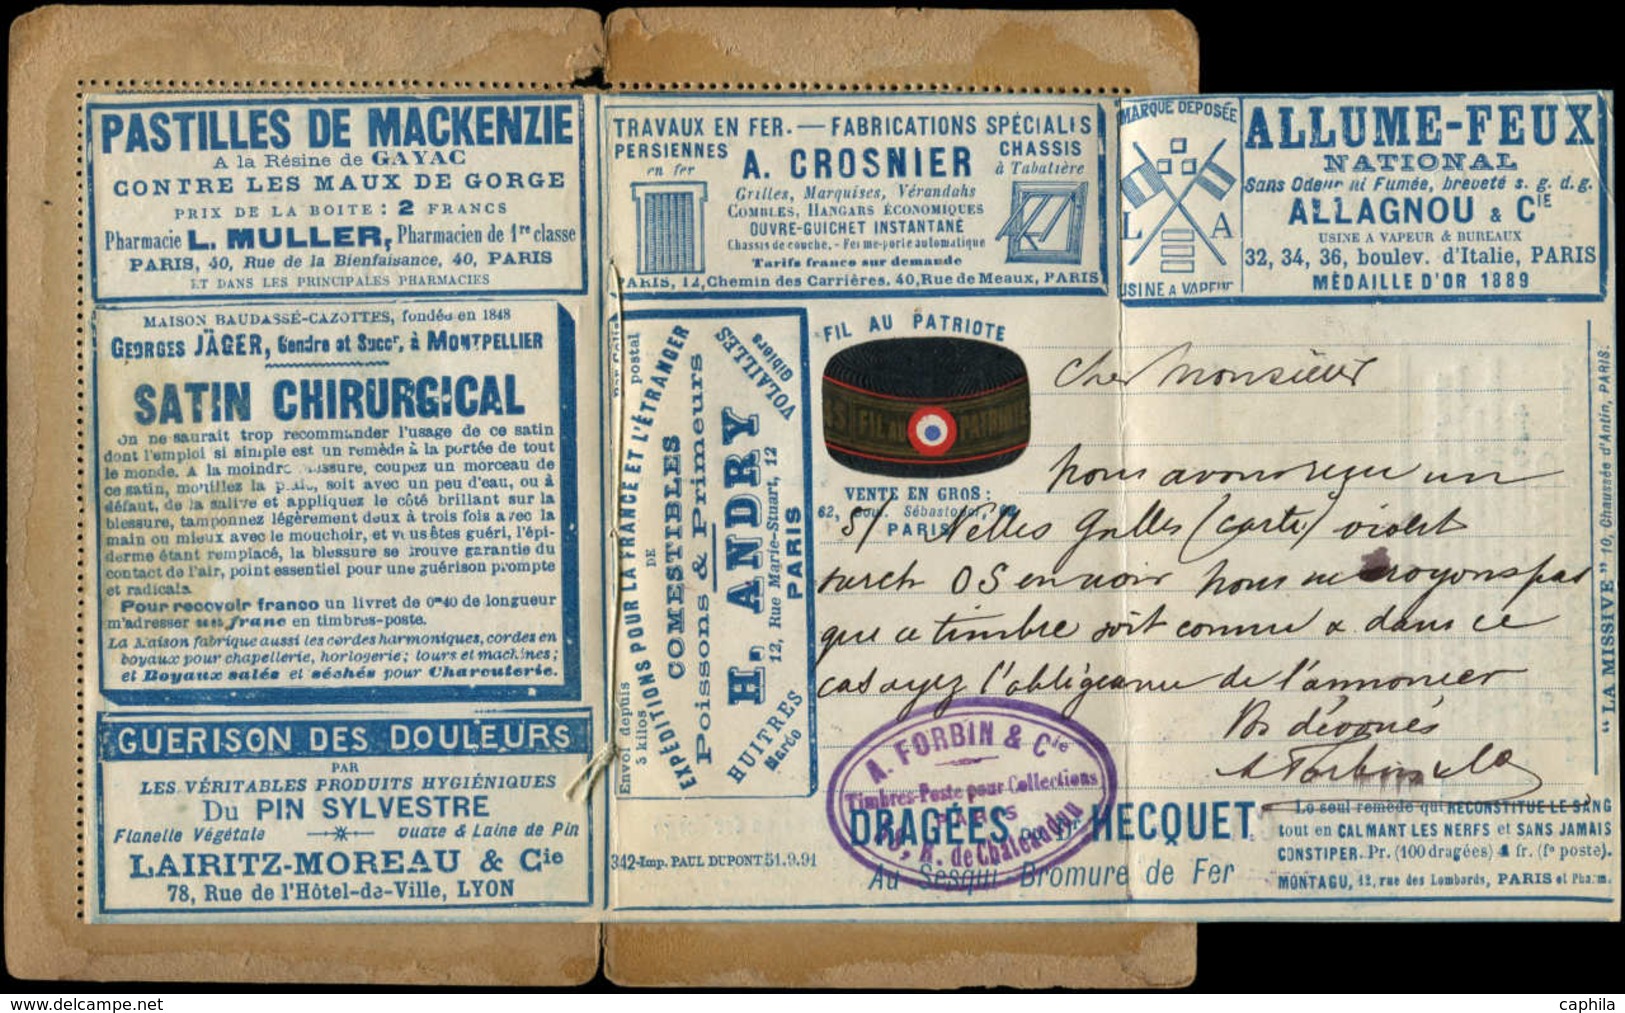 PASTILLES DE MACKENZIE
A la Résine de GAYAC
CONTRE LES MAUX DE GORGE
PRIX DE LA BOITE : 2 FRANCS
Pharmacie L. MULLER, Pharmacien de 1re classe
PARIS, 40, Rue de la Bienfaisance, 40, PARIS
ET DANS LES PRINCIPALES PHARMACIES
MAISON BAUDASSÉ-CAZOTTES, fondée en 1848
GEORGES JÄGER, Gendre et Succr, à MONTPELLIER
SATIN CHIRURGICAL
On ne saurait trop recommander l'usage de ce satin
dont l'emploi si simple est un remède à la portée de tout
le monde. A la moindre blessure, coupez un morceau de
ce satin, mouillez la plaie, soit avec un peu d'eau, ou à
défaut, de la salive et appliquez le côté brillant sur la
blessure, tamponnez légèrement deux à trois fois avec la
main ou mieux avec le mouchoir, et vous êtes guéri, l'épi-
derme étant remplacé, la blessure se trouve garantie du
contact de l'air, point essentiel pour une guérison prompte
et radicale.
Pour recevoir franco un livret de 0m40 de longueur
m'adresser un franc en timbres-poste.
La Maison fabrique aussi les cordes harmoniques, cordes en
boyaux pour chapellerie, horlogerie; tours et machines;
et Boyaux salés et séchés pour Charcuterie.
GUERISON DES DOULEURS
PAR
LES VÉRITABLES PRODUITS HYGIÉNIQUES
Du PIN SYLVESTRE
Flanelle Végétale Ouate & Laine de Pin
LAIRITZ-MOREAU & Cie
78, Rue de l'Hôtel-de-Ville, LYON
TRAVAUX EN FER. — FABRICATIONS SPÉCIALES
PERSIENNES en fer
A. CROSNIER
CHASSIS à Tabatière
Grilles, Marquises, Vérandahs
COMBLES, HANGARS ÉCONOMIQUES
OUVRE-GUICHET INSTANTANÉ
Chassis de couche. - Ferme-porte automatique
Tarifs franco sur demande
PARIS, 12, Chemin des Carrières. 40, Rue de Meaux, PARIS
MARQUE DÉPOSÉE
L A
USINE A VAPEUR
ALLUME-FEUX
NATIONAL
Sans Odeur ni Fumée, breveté s. g. d. g.
ALLAGNOU & CIE
USINE A VAPEUR & BUREAUX
32, 34, 36, boulev. d'Italie, PARIS
MÉDAILLE D'OR 1889
Envoi depuis 3 kilos postal
EXPÉDITIONS POUR LA FRANCE ET L'ÉTRANGER
DE
COMESTIBLES
Poissons & Primeurs
HUITRES
Marée
VOLAILLES
Gibiers
H. ANDRY
12, Rue Marie-Stuart, 12
PARIS
FIL AU PATRIOTE
FIL AU PATRIOTE
VENTE EN GROS :
62, Boul. Sébastopol, 62
PARIS
Cher Monsieur
Nous avons reçu un
5/ Nelles Galles (carte) violet
surch OS en noir Nous ne croyons pas
que ce timbre soit connu & dans ce
cas ayez l'obligeance de l'annoncer
Vos dévoués
A Forbin & Co
A. FORBIN & Cie
Timbres-Poste pour Collections
PARIS
R. de Chateaudun
DRAGÉES DU Dr HECQUET
Au Sesqui-Bromure de Fer
Le seul remède qui RECONSTITUE LE SANG
tout en CALMANT LES NERFS et SANS JAMAIS
CONSTIPER. Pr. (100 dragées) 4 fr. (fo poste).
MONTAGU, 12, rue des Lombards, PARIS et Pharm.
342-Imp. PAUL DUPONT 51.9.91
"LA MISSIVE" 10, Chaussée d'Antin, PARIS.
caphila